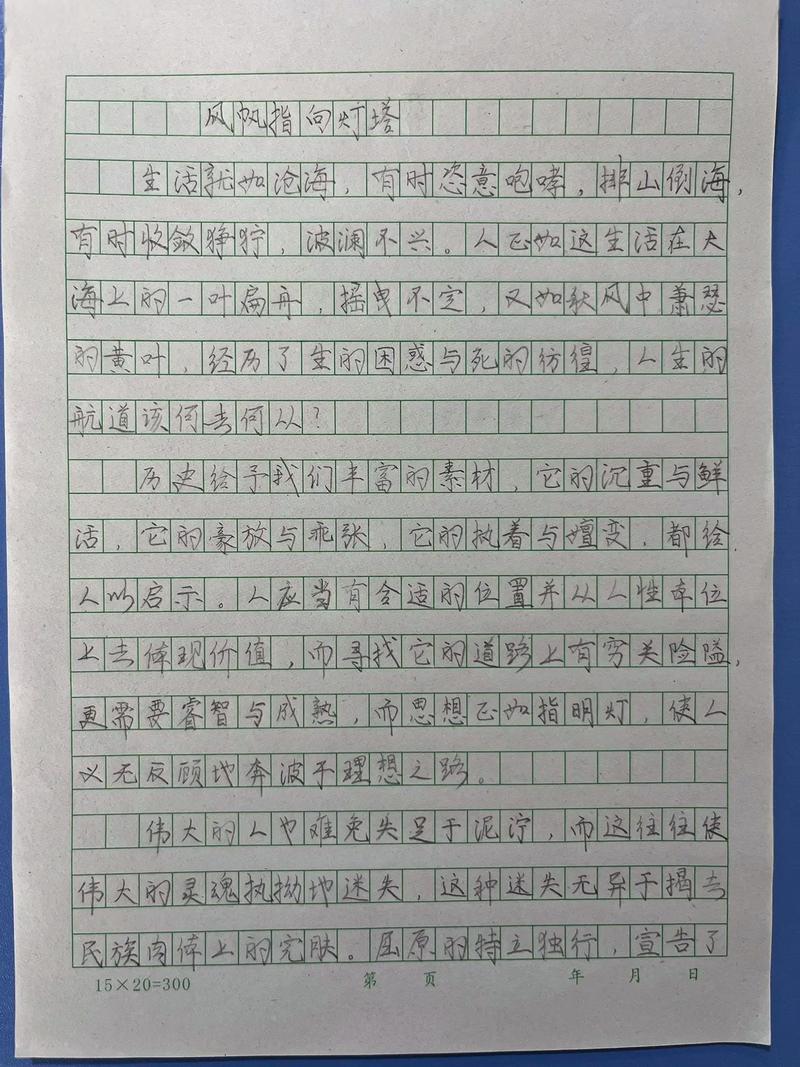 风帆指向灯塔
生活就如沧海，有时恣意咆哮，排山倒海，
有时收敛狰狞，波澜不兴。人正如这生活在大
海上的一叶扁舟，摇曳不定，又如秋风中萧瑟
的黄叶，经历了生的困惑与死的彷徨，人生的
航道该何去何从？
历史给予我们丰富的素材，它的沉重与鲜
活，它的豪放与乖张，它的执着与嬗变，都给
人以启示。人应当有合适的位置并从人性本位
上去体现价值，而寻找它的道路上有穷关险隘，
更需要睿智与成熟，而思想正如指明灯，使人
义无反顾地奔波于理想之路。
伟大的人也难免失足于泥泞，而这往往使
伟大的灵魂执拗地迷失，这种迷失无异于揭去
民族肉体上的完肤。屈原的特立独行，宣告了
15×20=300 第 页 年 月 日